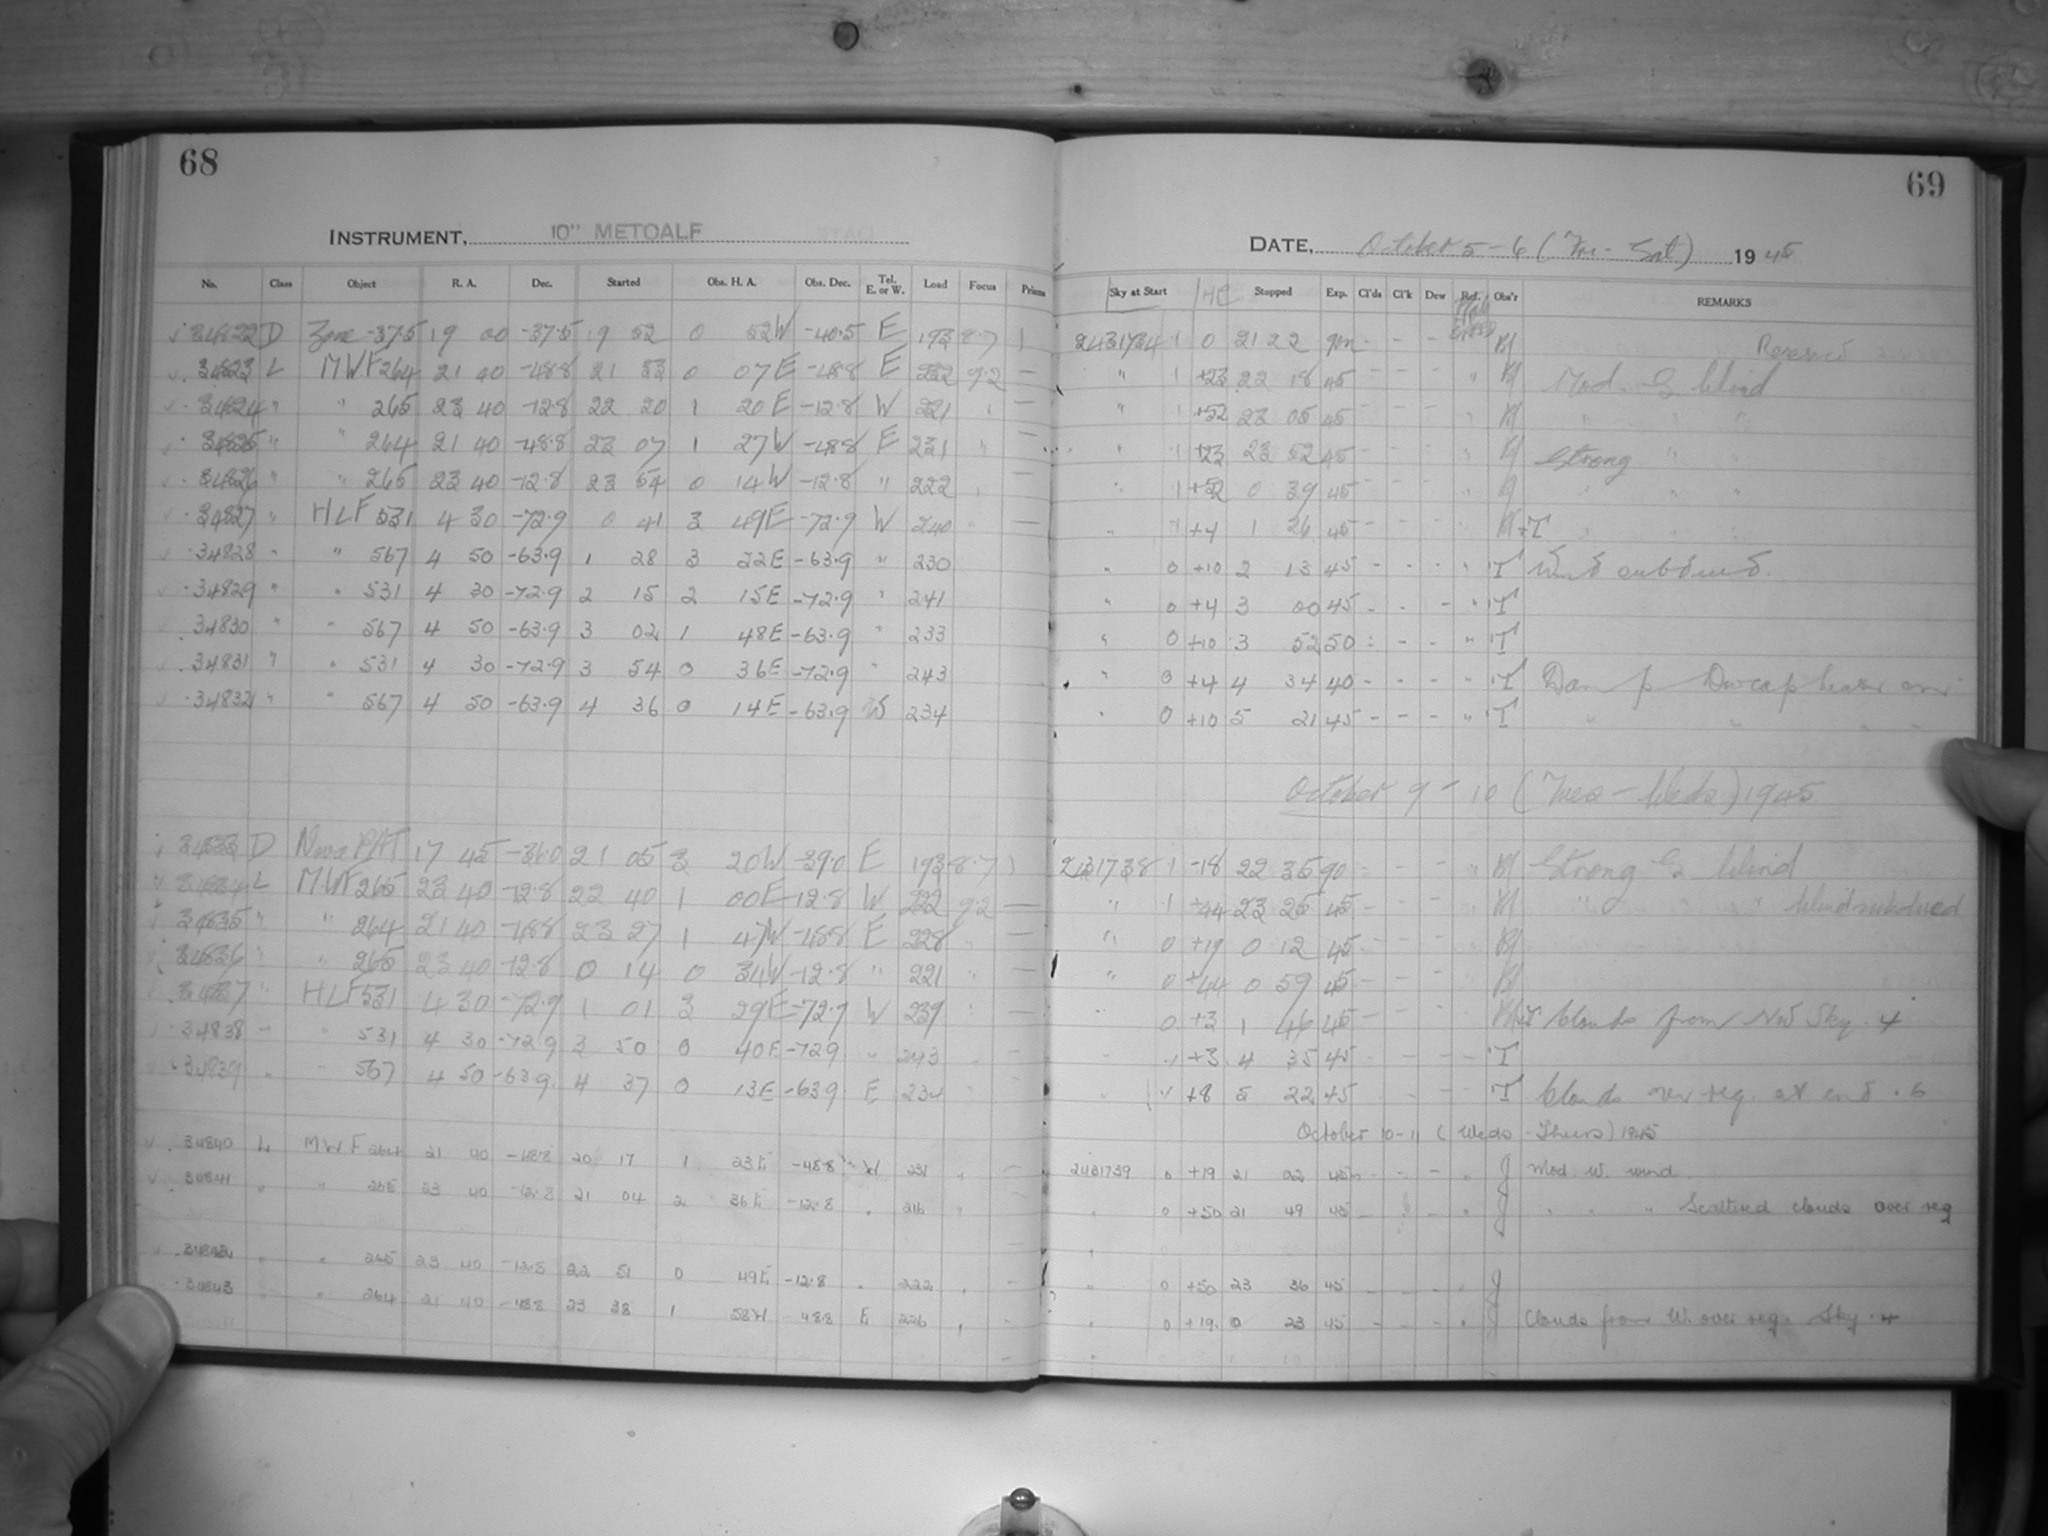 68
INSTRUMENT, 10" METCALF
No. Class Object R. A. Dec. Started Obs. H. A. Obs. Dec. Tel. E. or W. Load Focus Prisms
34822 D Zone -37.5 19 00 -37.5 19 52 0 52W -40.5 E 193 8.7 1
34823 L MWF 264 21 40 -48.8 21 33 0 07E -48.8 E 232 9.2 —
34824 " " 265 23 40 -12.8 22 20 1 20E -12.8 W 221 —
34825 " " 264 21 40 -48.8 23 07 1 27W -48.8 E 231 " —
34826 " " 265 23 40 -12.8 23 54 0 14W -12.8 " 222
34827 " HLF 531 4 30 -72.9 0 41 3 49E -72.9 W 240 " —
34828 " " 567 4 50 -63.9 1 28 3 22E -63.9 " 230
34829 " " 531 4 30 -72.9 2 15 2 15E -72.9 " 241
34830 " " 567 4 50 -63.9 3 02 1 48E -63.9 " 233
34831 " " 531 4 30 -72.9 3 54 0 36E -72.9 " 243
34832 " " 567 4 50 -63.9 4 36 0 14E -63.9 W 234
34833 D Nova 17 45 -36.0 21 05 3 20W -39.0 E 193 8.7 1
34834 L MWF 265 23 40 -12.8 22 40 1 00E -12.8 W 222 9.2 —
34835 " " 264 21 40 -48.8 23 27 1 47W -48.8 E 228 " —
34836 " " 265 23 40 -12.8 0 14 0 34W -12.8 " 221 " —
34837 " HLF 531 4 30 -72.9 1 01 3 29E -72.9 W 239 " —
34838 " " 531 4 30 -72.9 3 50 0 40E -72.9 " 243 —
34839 " " 567 4 50 -63.9 4 37 0 13E -63.9 E 234 " —
34840 L MWF 264 21 40 -48.8 20 17 1 23E -48.8 W 231 " —
34841 " " 265 23 40 -12.8 21 04 2 36E -12.8 " 216 "
34842 " " 265 23 40 -12.8 22 51 0 49E -12.8 " 222 " —
34843 " " 264 21 40 -48.8 23 38 1 58W -48.8 E 226 " —
69
DATE, October 5-6 (Fri - Sat) 1945
Sky at Start HC Stopped Exp. Cl'ds Cl'k Dew Ref. Obs'r REMARKS
2431734 1 0 21 22 90m - - - Bl Reserved
" 1 +23 22 18 45 - - - " Bl Mod. S Wind
" 1 +52 23 05 45 - - - Bl " " "
" 1 +23 23 52 45 - - - " Bl Strong " "
" 1 +52 0 39 45 - - - " Bl " " "
" 1 +4 1 26 45 - - - " Bl+T " " "
" 0 +10 2 13 45 - - - " T Wind subdued.
" 0 +4 3 00 45 - - - " T
" 0 +10 3 52 50 - - - " T
" 0 +4 4 34 40 - - - " T Damp Dewcap heater on
" 0 +10 5 21 45 - - - " T " " "
October 9 - 10 (Tues - Weds) 1945
2431738 1 -18 22 35 90 - - - " Bl Strong S Wind
" 1 +44 23 25 45 - - - " Bl " " " Wind subdued
" 0 +19 0 12 45 - - - " Bl
" 0 +44 0 59 45 - - - " Bl
" 0 +3 1 46 45 - - - Bl+T Clouds from NW Sky .4
" 1 +3 4 35 45 - - - - T
" " +8 5 22 45 - - - T Clouds over reg. at end .6
October 10-11 (Weds - Thurs) 1945
2431739 0 +19 21 02 45m - - - " J Mod. W. wind.
" 0 +50 21 49 45 - - - " J " " " Scattered clouds over reg
" 0 +50 23 36 45 J
" 0 +19 0 23 45 - - - " J Clouds from W. over reg. Sky .4